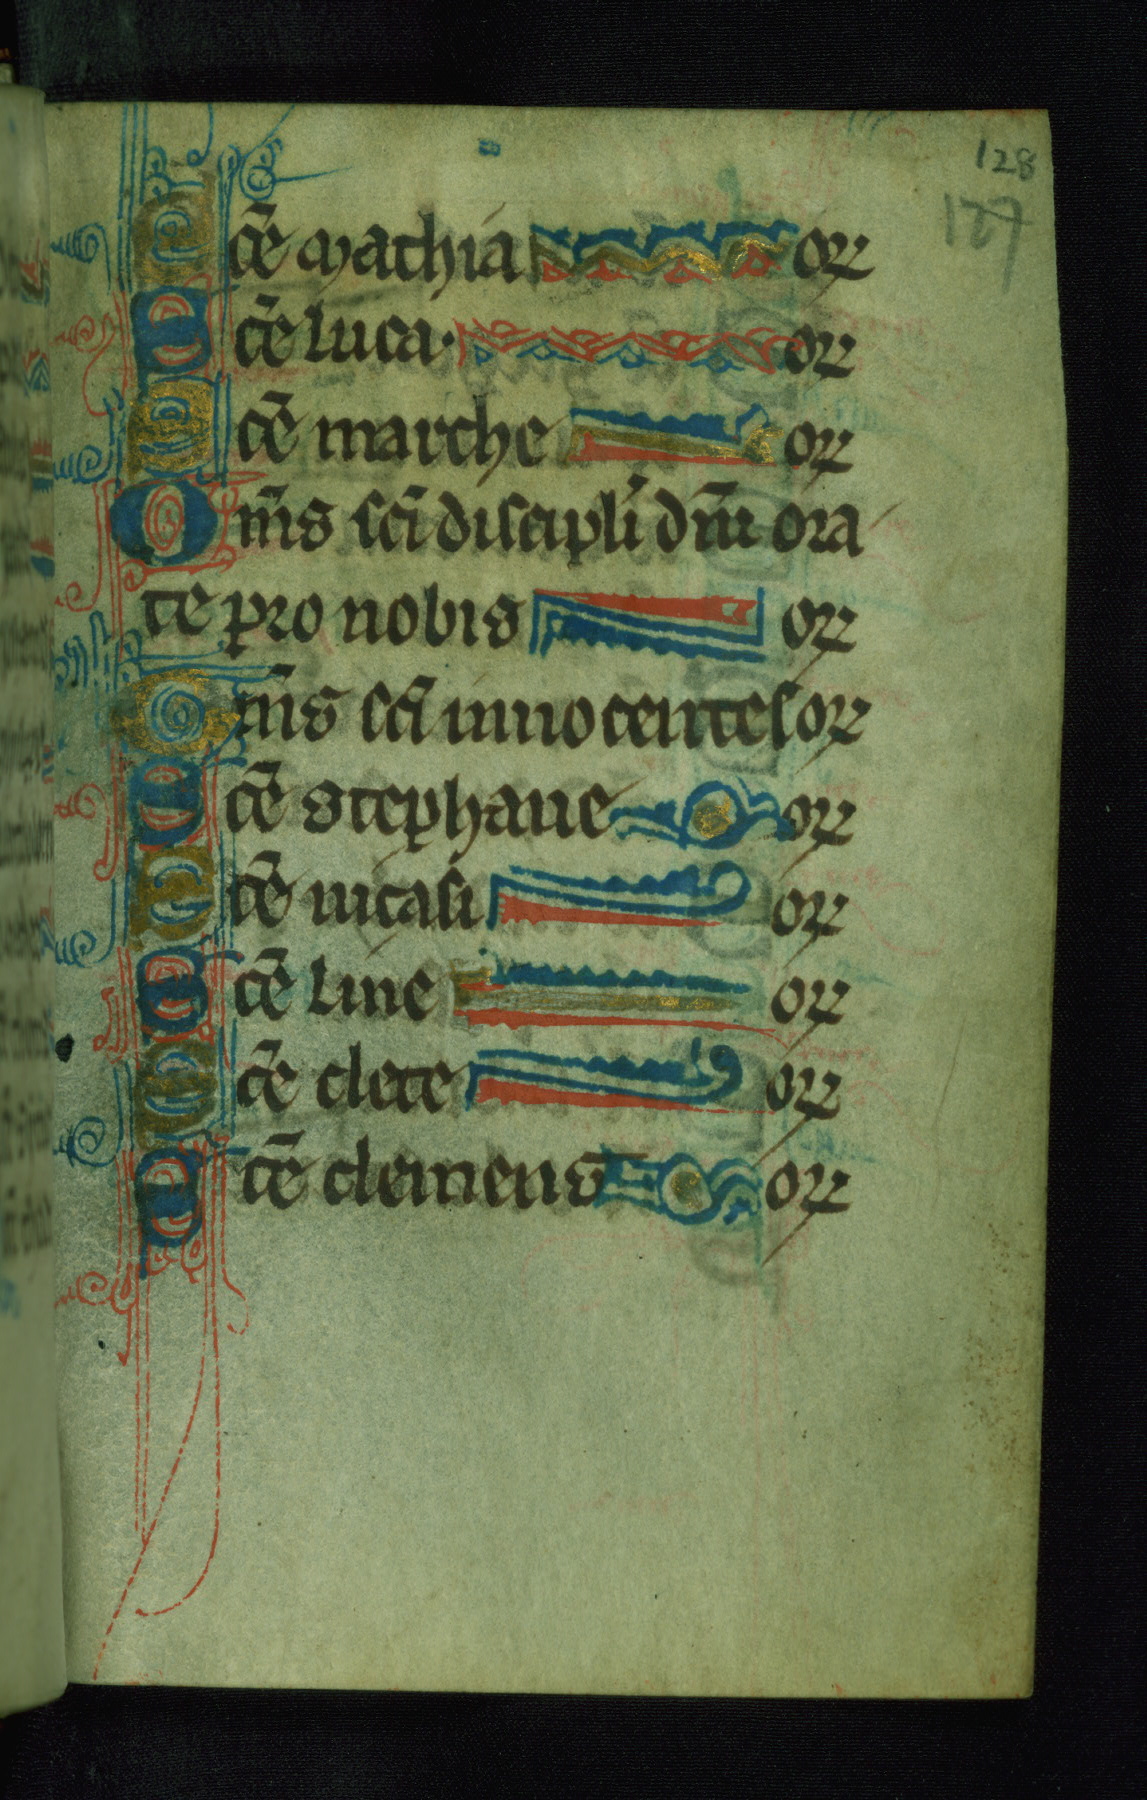 128
127
Sc̄e mathia or
Sc̄e luca· or
Sc̄e marche or
Om̄s sc̄i discipli dn̄i ora
te pro nobis or
Om̄s sc̄i innocentes or
Sc̄e stephane or
Sc̄e nicasi or
Sc̄e line or
Sc̄e clete or
Sc̄e clemens or